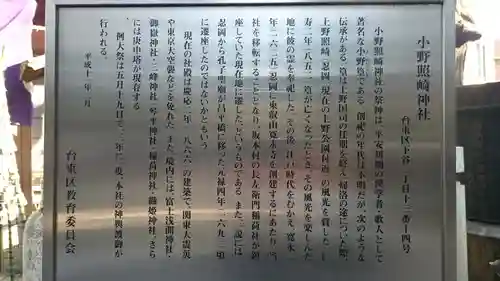 小野照崎神社
台東区下谷二丁目十三番一四号
小野照崎神社の祭神は、平安初期の漢学者・歌人として
著名な小野篁である。創祀の年代は不明だが、次のような
伝承がある。篁は上野国司の任期を終え、帰洛の途についた際、
上野照崎(忍岡、現在の上野公園付近)の風光を賞した。仁
寿二年(八五二)篁が亡くなったとき、その風光を楽しんだ
地に彼の霊を奉祀した。その後、江戸時代をむかえ、寛永
二年(一六二五)忍岡に東叡山寛永寺を創建するにあたり、当
社を移転することとなり、坂本村の長左衛門稲荷社が鎮
座していた現在地に遷した、というものである。また、一説には
忍岡から孔子聖廟が昌平橋に移った元禄四年(一六九一)頃
に遷座したのではないかともいう。
現在の社殿は慶応二年(一八六六)の建築で、関東大震災
や東京大空襲などを免れた。また、境内には、富士浅間神社・
御嶽神社・三峰神社・琴平神社・稲荷神社・織姫神社、さら
には庚申塔が現存する。
例大祭は五月十九日で、三年に一度、本社の神輿渡御が
行われる。
平成十一年三月
台東区教育委員会